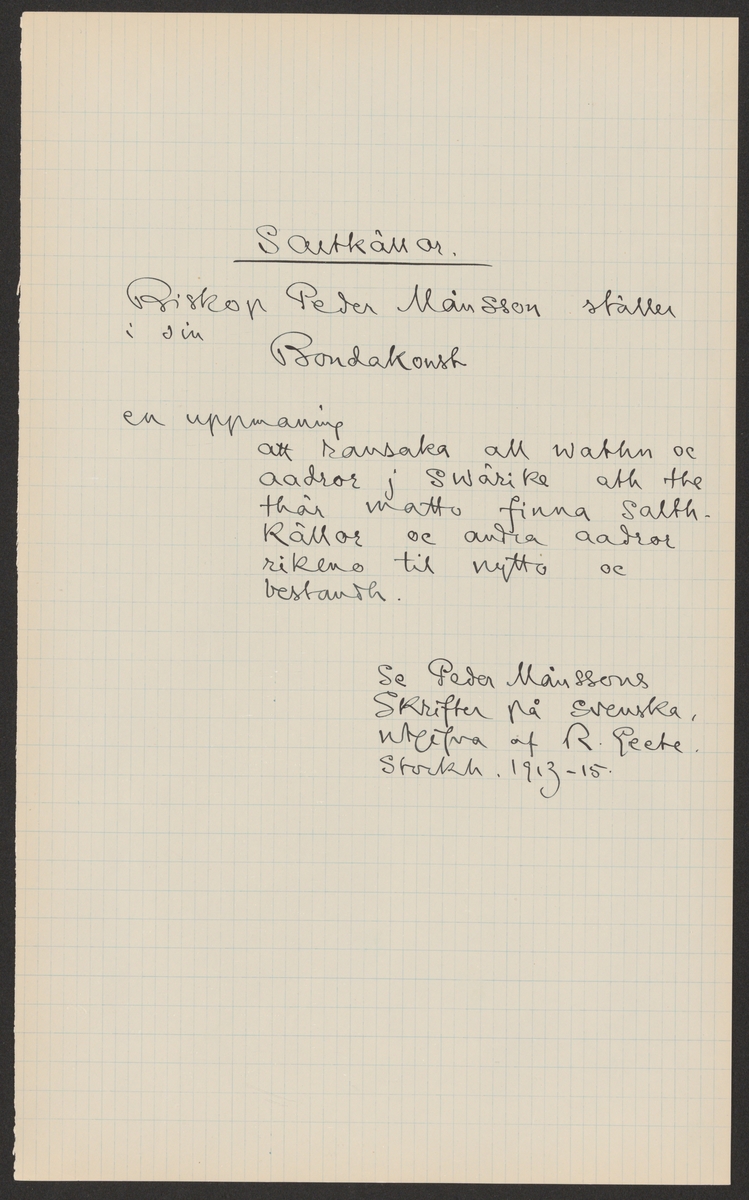 Saltkällor.
Biskop Peder Månsson ställer
i sin
Bondakonst
en uppmaning
att ransaka all wathn oc
aadror j Swärike ath the
thär matto finna Salth-
Källor oc andra aadror
rikeno til nytto oc
bestandh.
Se Peder Månssons
Skrifter på svenska,
utgifva af R. Geete.
Stockh. 1913-15.